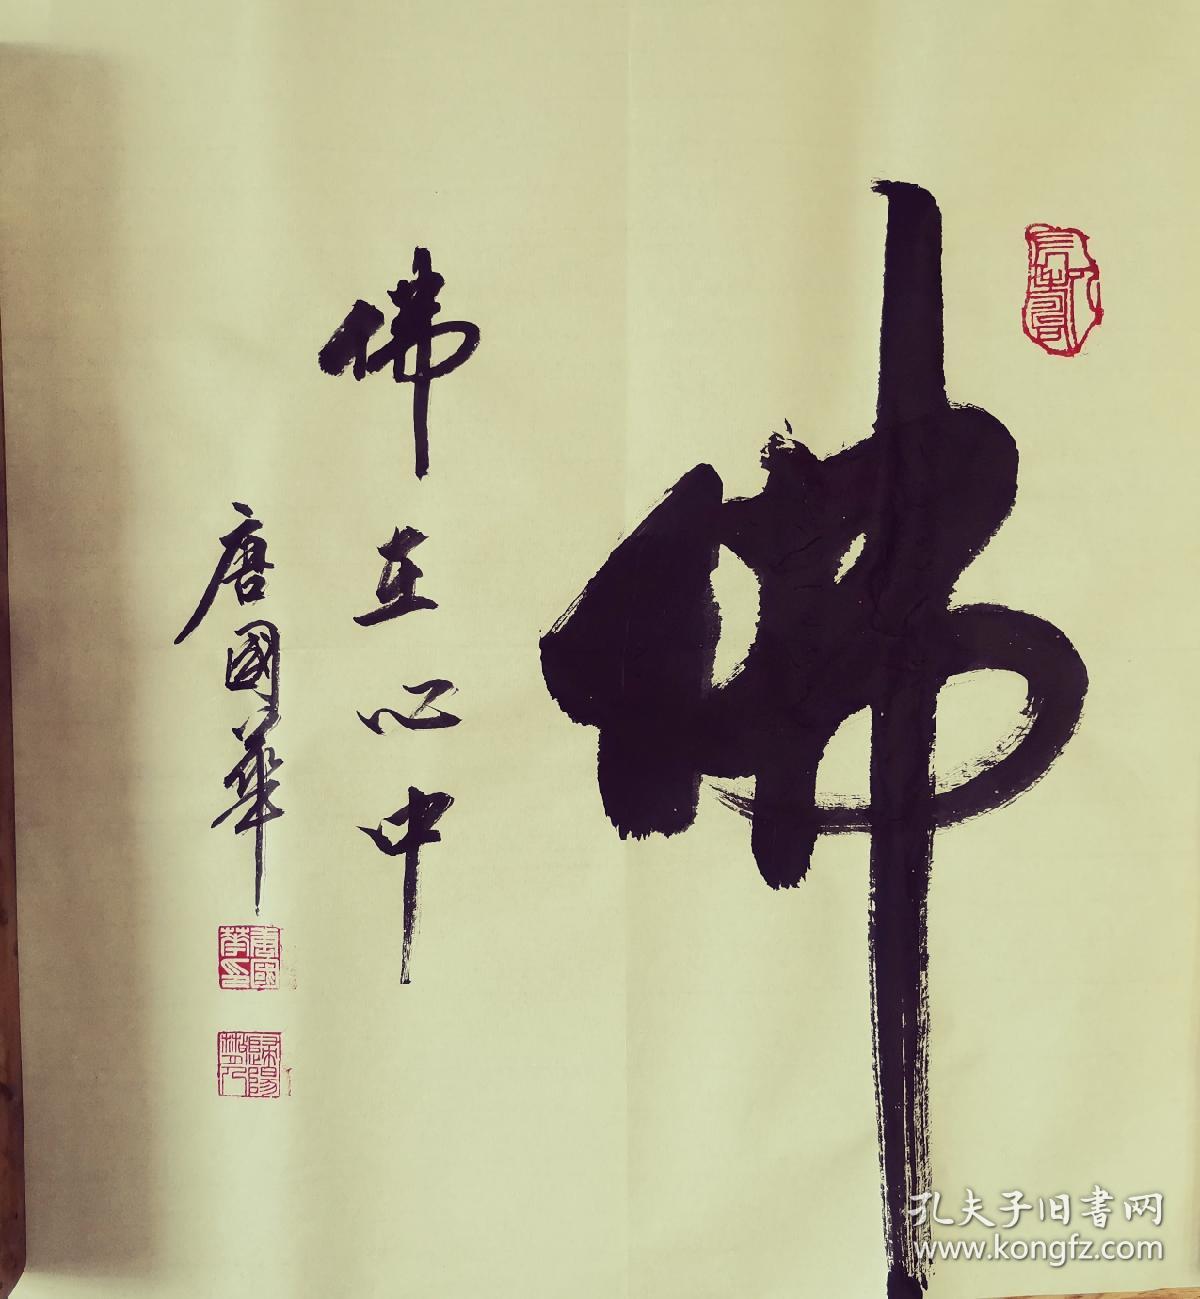 佛
佛在心中
唐國華
唐國華印
孔夫子旧书网
www.kongfz.com